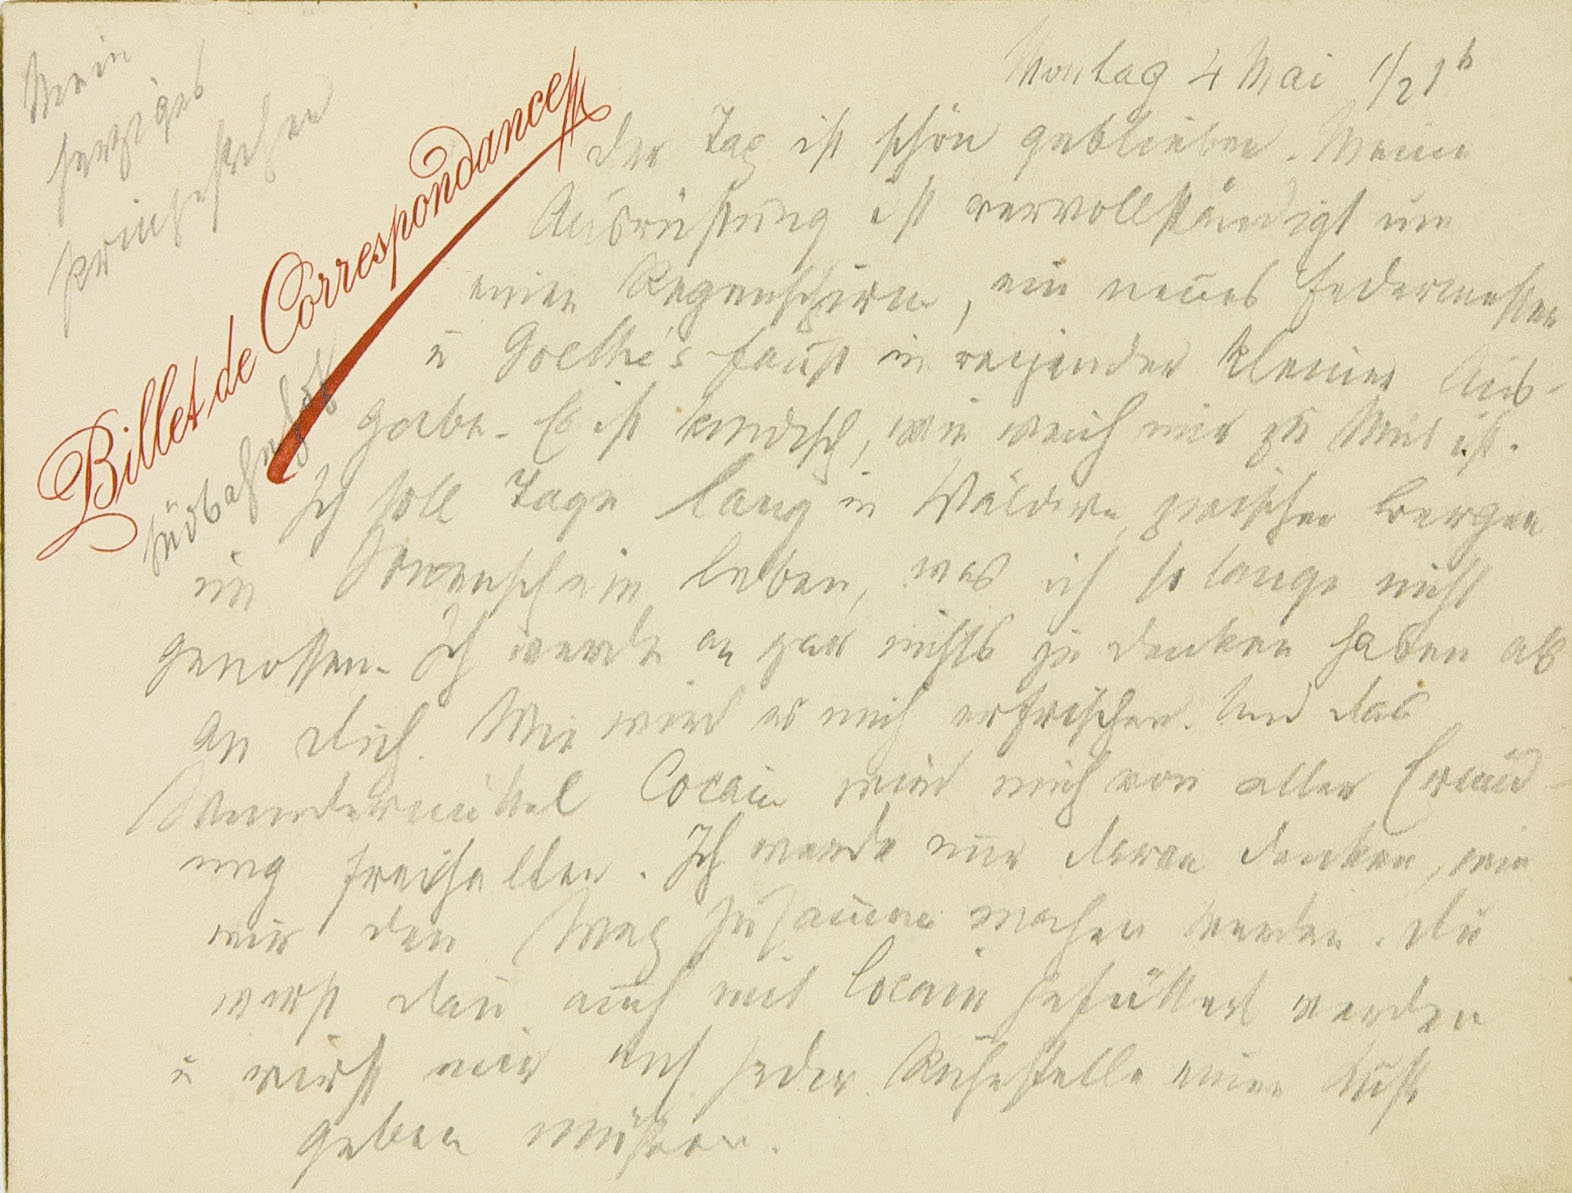 Mein
herziges
Prinzeßchen
Billet de Correspondance
Südbahnhof
Montag 4 Mai 1/2 1h
Der Tag ist schön geblieben. Meine
Ausrüstung ist vervollständigt um
einen Regenschirm, ein neues Federmesser
u Goethe's Faust in reizender kleiner Aus-
gabe. Es ist kindisch, wie weich mir zu Mut ist.
Ich soll Tage lang in Wäldern, zwischen Bergen
im Sonnenschein leben, was ich so lange nicht
genossen. Ich werde an gar nichts zu denken haben als
an Dich. Wie wird es mich erfrischen. Und das
Wundermittel Cocain wird mich von aller Ermüd-
ung freihalten. Ich werde nur daran denken, wie
wir den Weg zusammen machen werden. Du
wirst dañ auch mit Cocain gefüttert werden
u wirst mir auf jeder Ruhestelle einen Kuß
geben müssen.